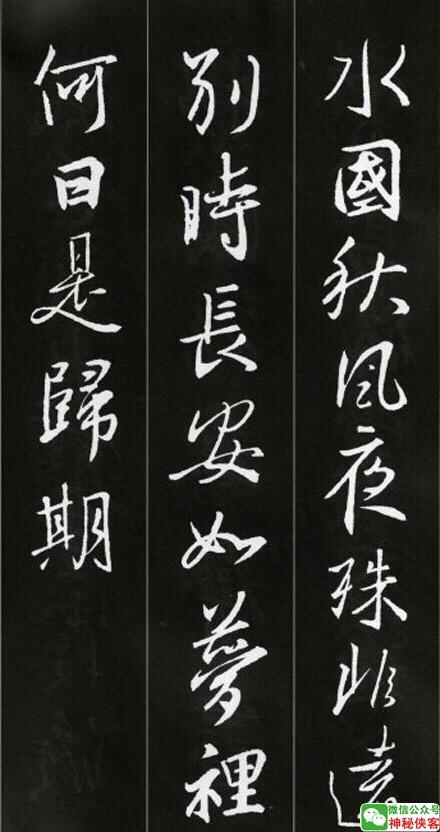 水國秋風夜殊非遠
別時長安如夢裡
何日是歸期
微信公众号
神秘侠客